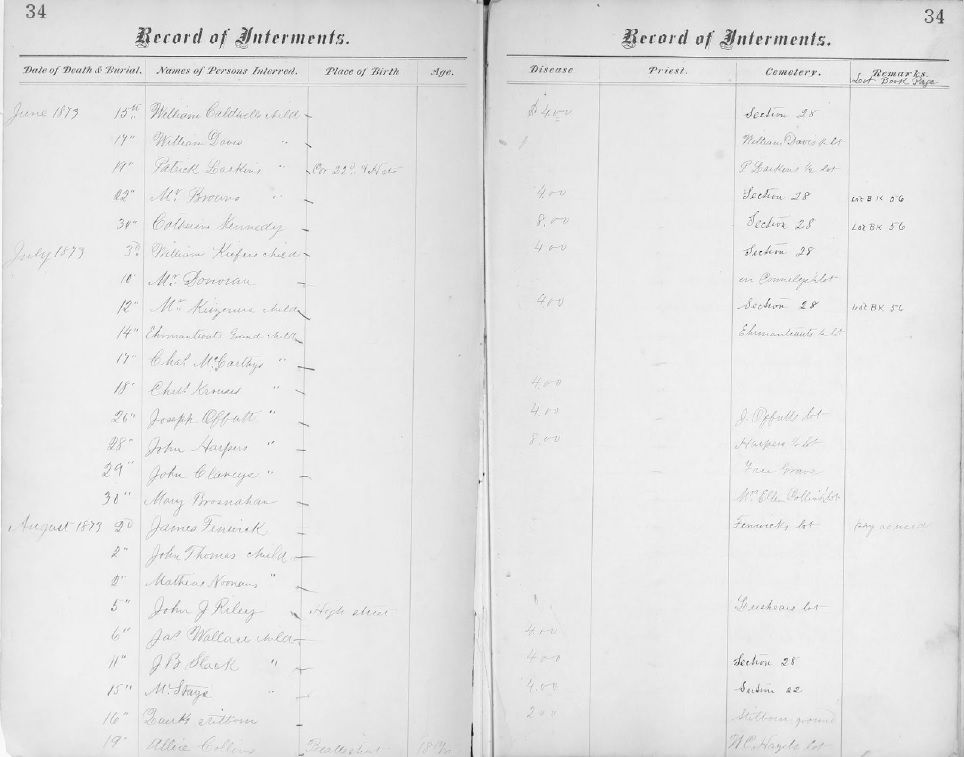 34
Record of Interments.
Date of Death & Burial. Names of Persons Interred. Place of Birth Age.
June 1873 15th William Caldwells child
17" William Davis "
19" Patrick Larkins " Cor 22d
22" Mr. Browns "
30" Catherine Kennedy
July 1873 3d William Kiefers child
10" Mr. Donovan
12" Mr. child
14" Ehrmantrouts Grand child
17" Chas. McCarthys "
18" Chas. Krouses "
26" Joseph Offutt "
28" John Harpers "
29" John Clanceys "
30" Mary Brosnahan
August 1873 2d James Fenwick
2" John Thomas child
2" Mathew Noonans "
5" John J Riley High street
6" Jas Wallace child
11" J B Slack "
15" Mc Stays "
16" stillborn
19" Allie Collins
34
Record of Interments.
Disease Priest. Cemetery. Remarks.
Lot Book Page
$4.00 Section 28
William Davis ½ lot
P Larkins ½ lot
4.00 Section 28 Lot BK 56
8.00 Section 28 Lot BK 56
4.00 Section 28
in lot
4.00 Section 28 Lot BK 56
Ehrmantrouts ½ lot
4.00
4.00 J. Offutts lot
8.00 Harpers ½ lot
Free Grave
Mrs Ellen lot
Fenwicks lot
lot
4.00
4.00 Section 28
4.00 Section 22
2.00 Stillborn ground
W.C. lot